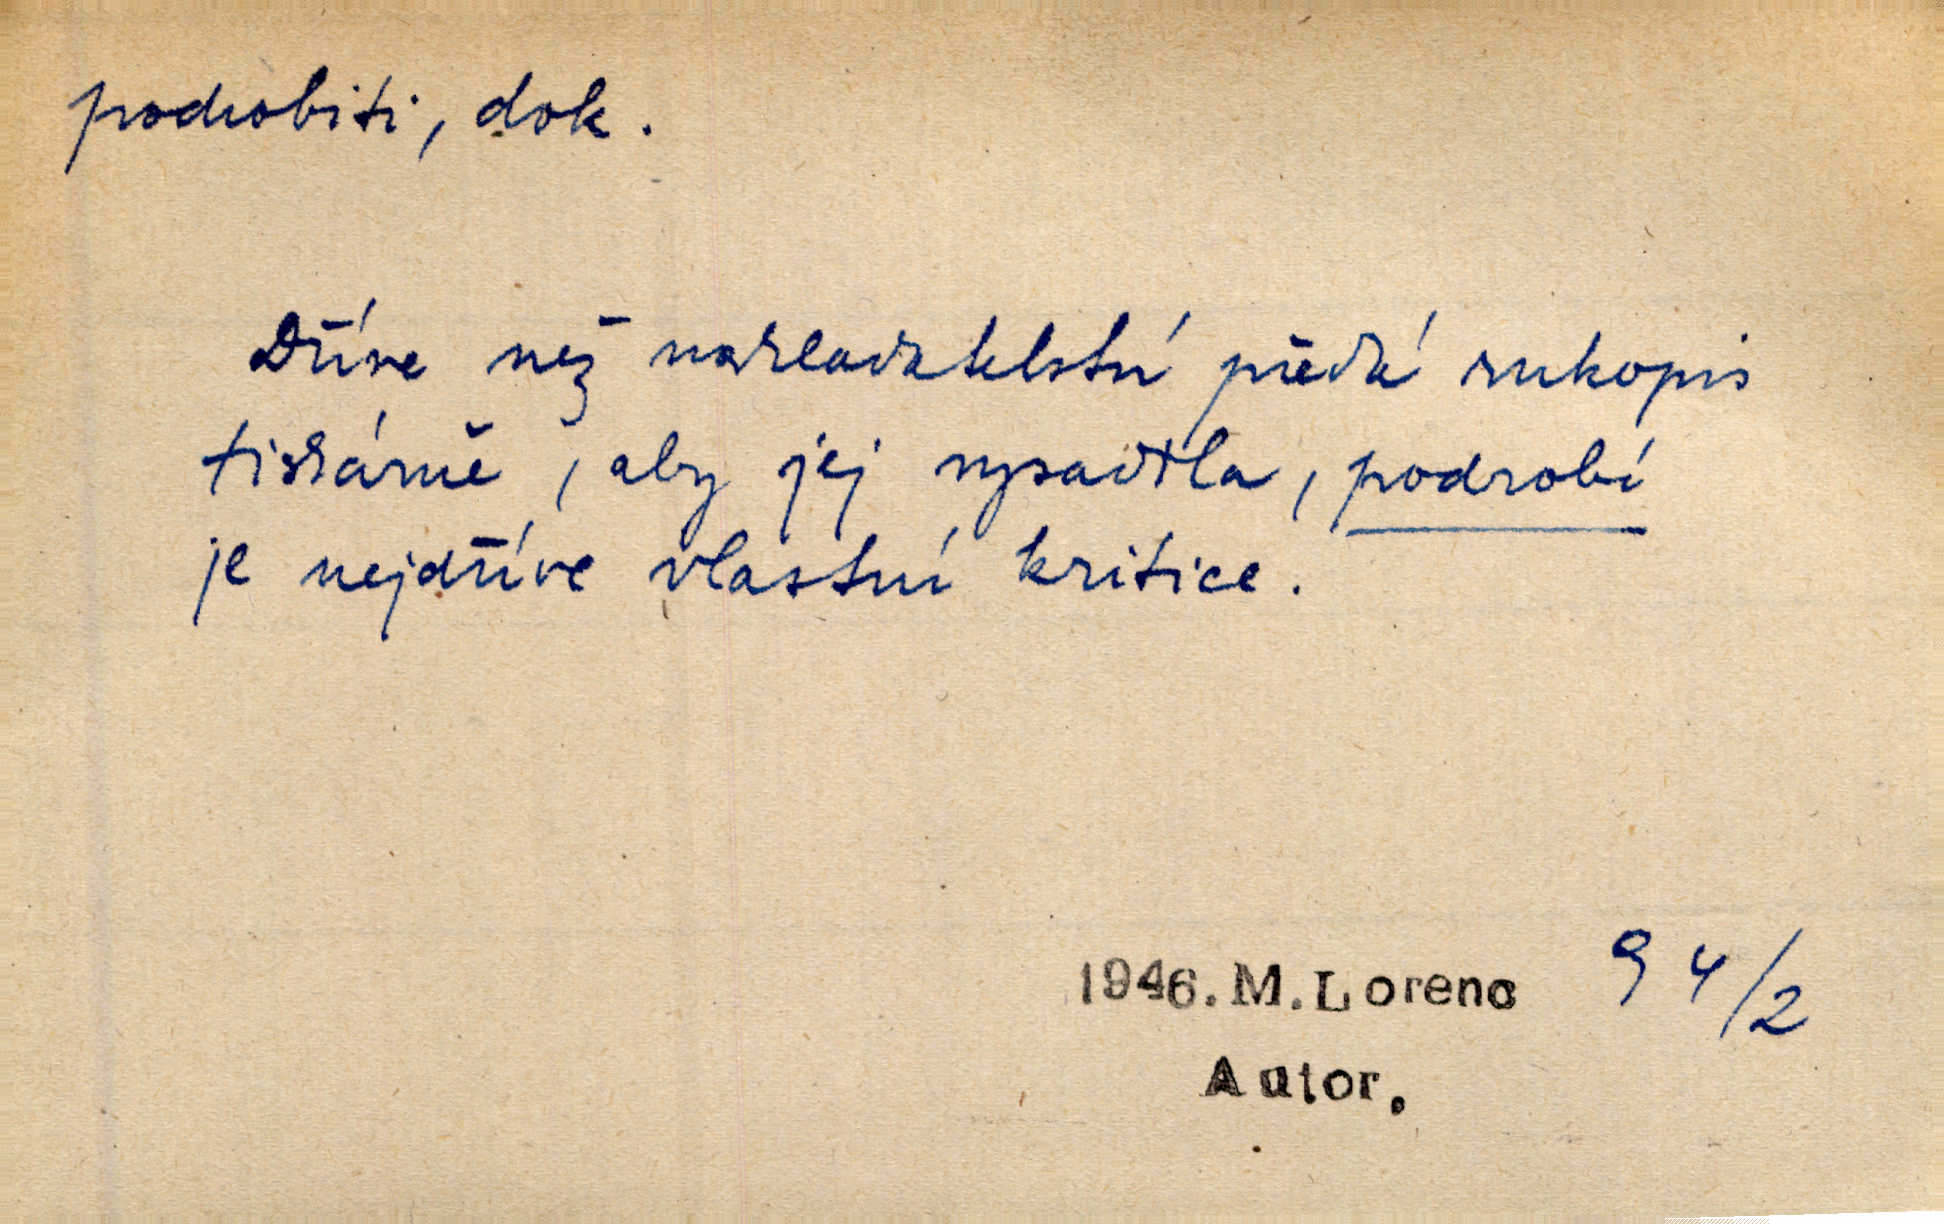 podrobiti, dok.
Dříve než nakladatelství předá rukopis
tiskárně, aby jej vysadila, podrobí
je nejdříve vlastní kritice.
1946. M. Lorenc 94/2
Autor.